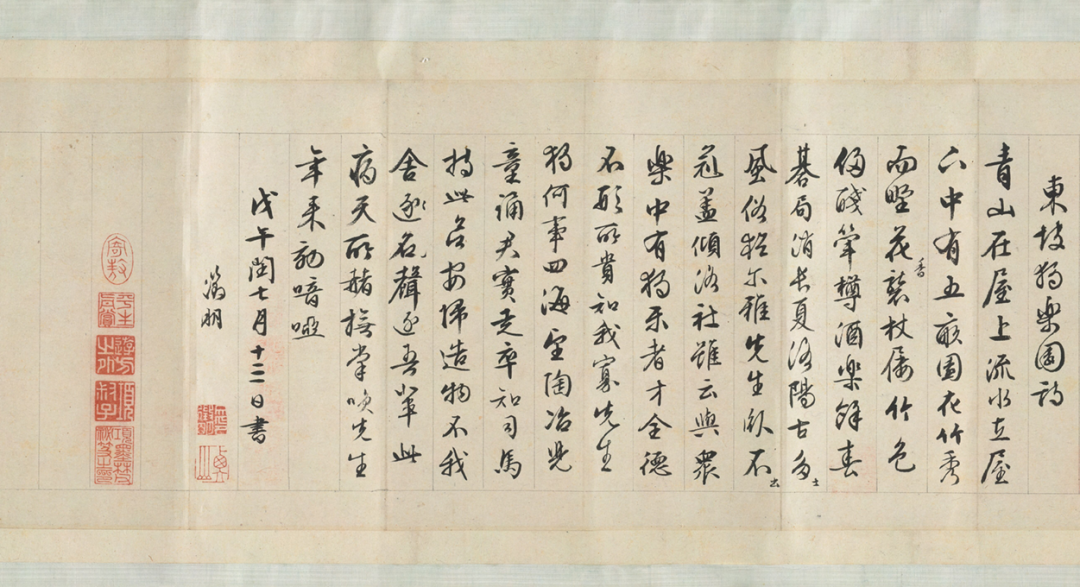 東坡獨樂園詩
青山在屋上流水在屋
下中有五畝園花竹秀
而野花香襲杖屨竹色
侵醆斝樽酒樂餘春
棊局消長夏洛陽古多士
風俗猶尔雅先生臥不出
冠蓋傾洛社雖云與衆
樂中有獨樂者才全德
不形所貴知我寡先生
獨何事四海望陶冶兒
童誦君實走卒知司馬
持此欲安歸造物不我
舍逐名聲逐吾輩此
病天所赭撫掌笑先生
年來效喑啞
戊午閏七月十二日書
徵明
平生真賞
遊方之外
項叔子